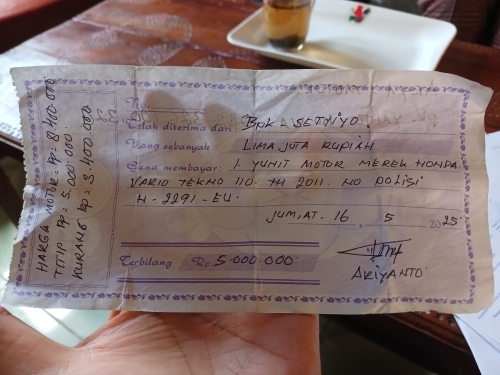 HARGA MOTOR Rp: 8.400.000
TITIP Rp: 5.000.000
KURANG Rp 3.400.000
No.
Telah diterima dari Bpk. SETYIYO.
Uang sebanyak LIMA JUTA RUPIAH
Guna membayar: 1 YUNIT MOTOR MEREK HONDA
VARIO TEKNO 110. TH 2011. NO POLISI
H-2291-EU.
JUM,AT. 16, 5 2025.
Terbilang Rp. 5.000.000.
ARIYANTO